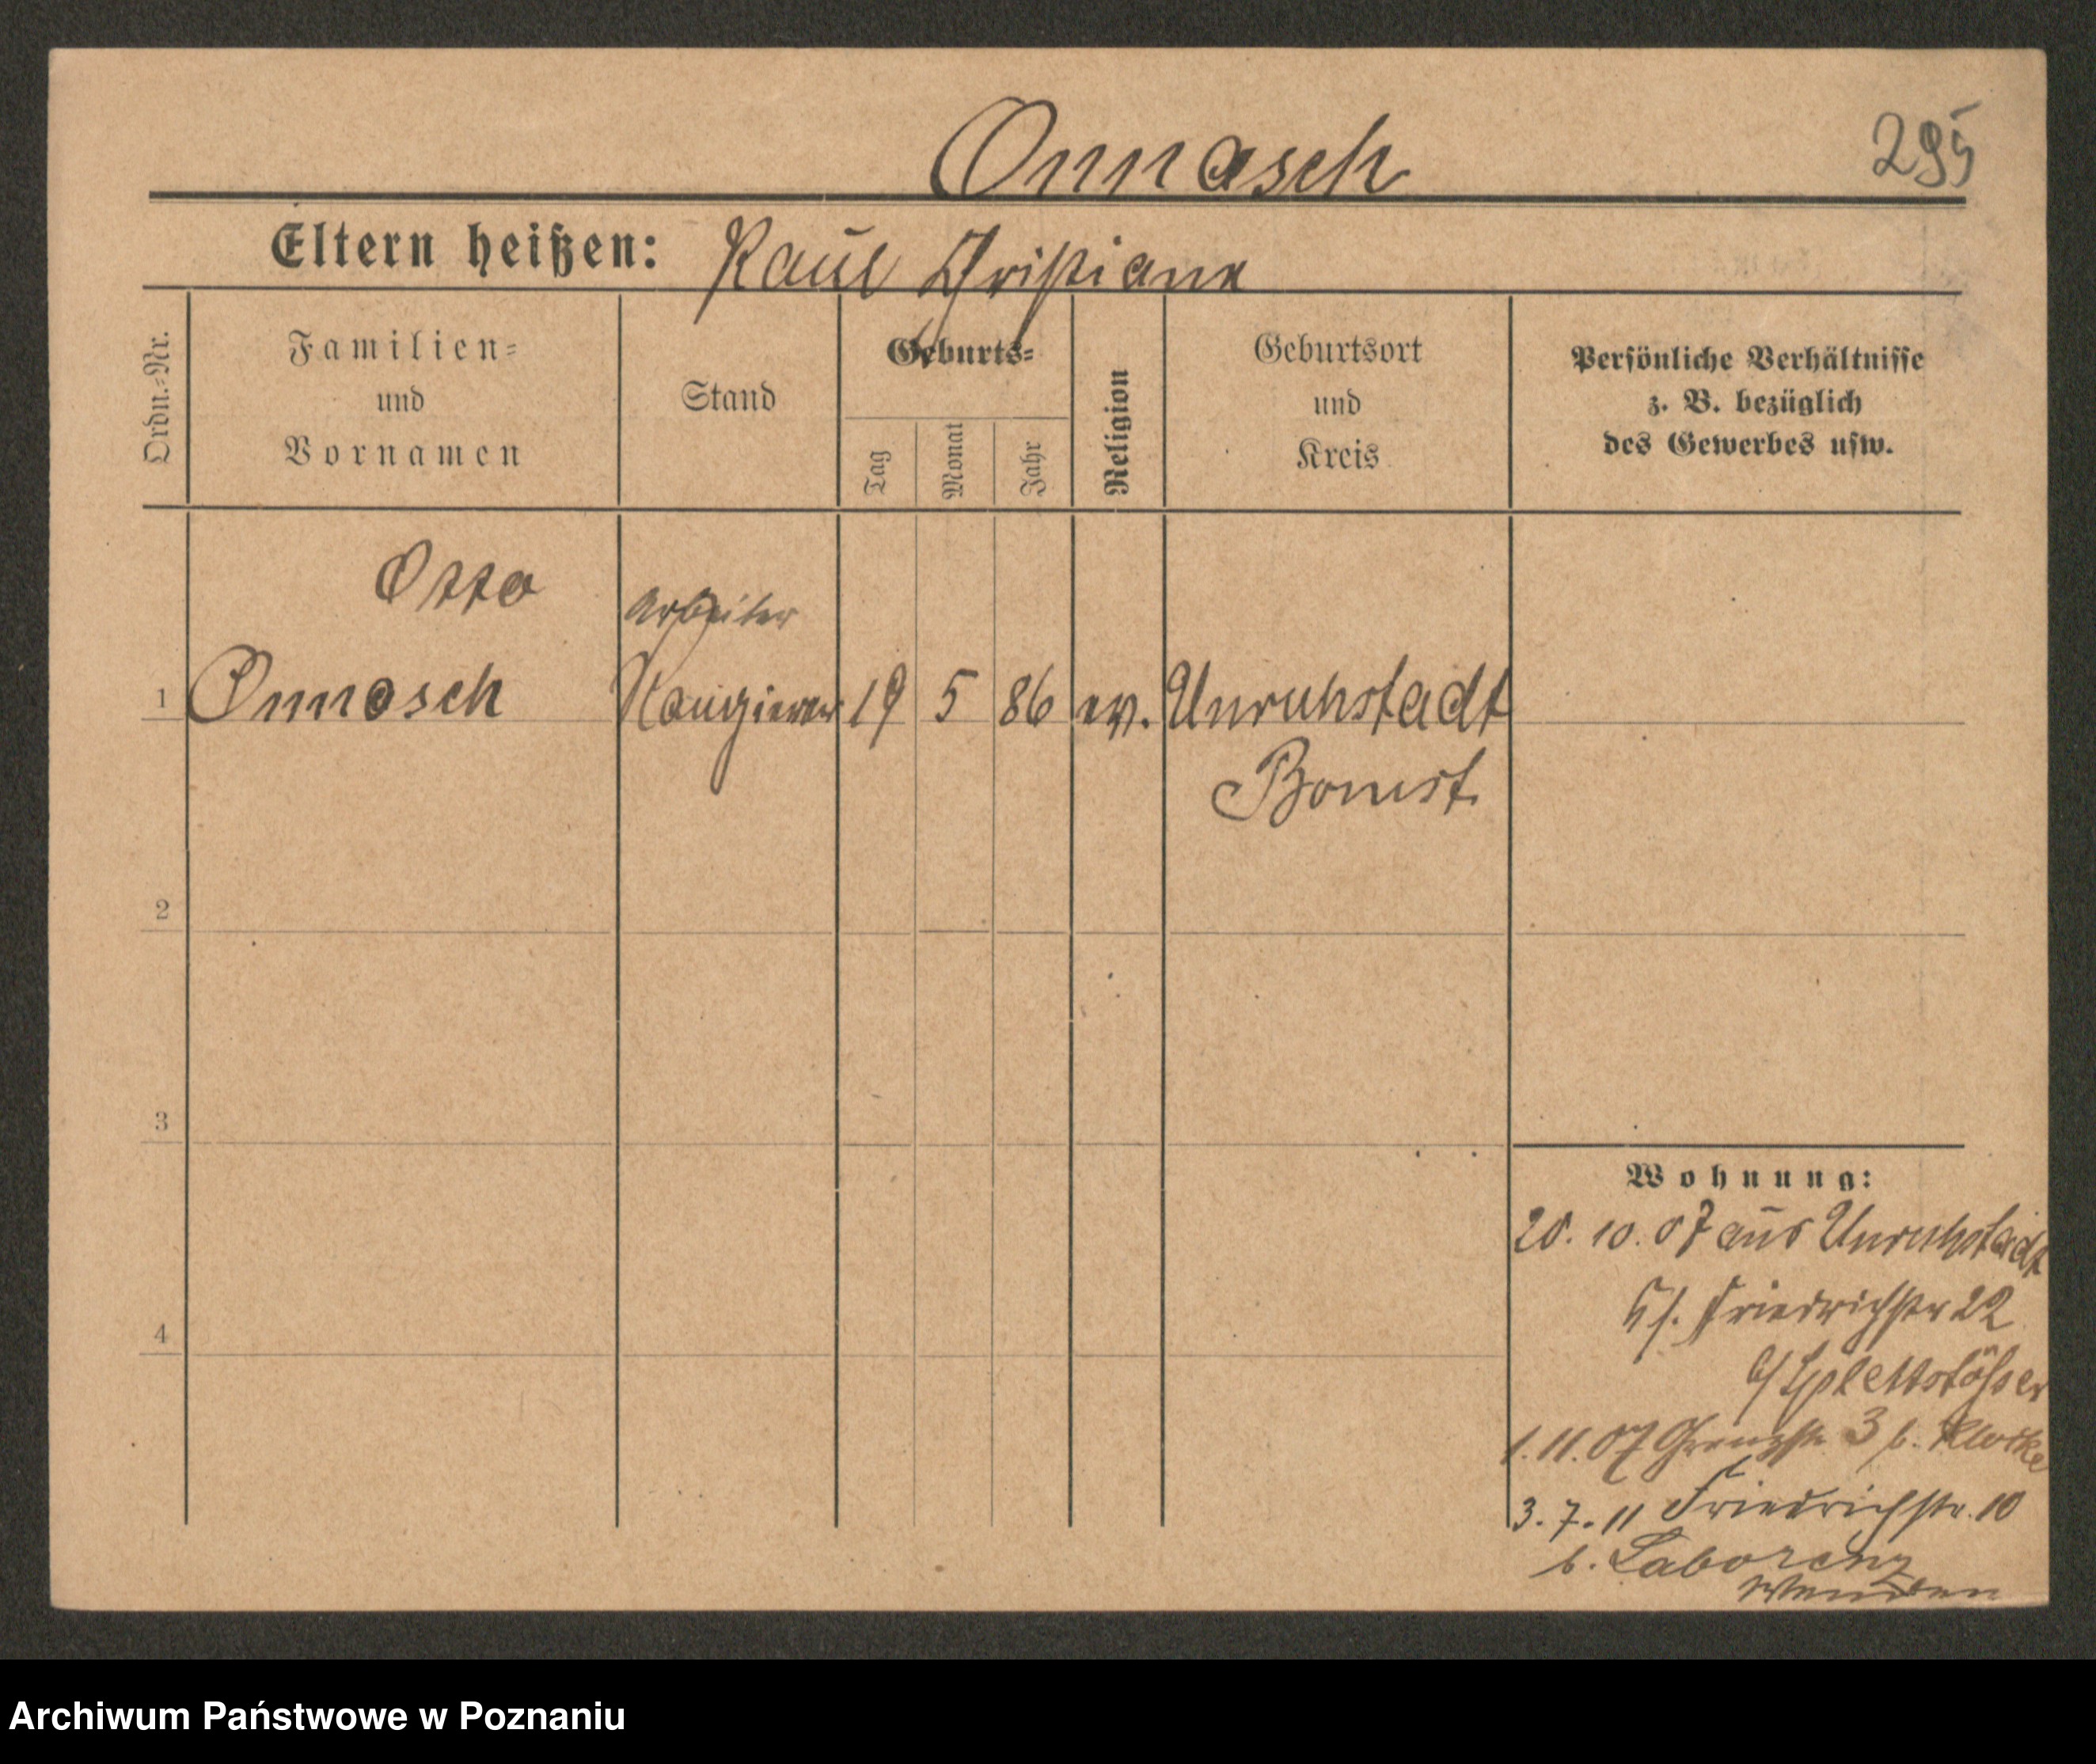 Onnasch
295
Eltern heißen: Paul Christiana
Ordn.-Nr.
Familien-
und
Vornamen
Stand
Geburts-
Tag
Monat
Jahr
Religion
Geburtsort
und
Kreis
Persönliche Verhältnisse
z. B. bezüglich
des Gewerbes usw.
Otto
Arbeiter
1 Onnasch Rangierer 19 5 86 ev. Unruhstadt
Bomst
2
3
4
Wohnung:
20. 10. 07 aus Unruhstadt
Friedrichstr 22
b/ Splettstößer
1. 11. 07 Grenzstr. 3 b. Klotke
3. 7. 11 Friedrichstr. 10
b. Laborenz
wenden
Archiwum Państwowe w Poznaniu